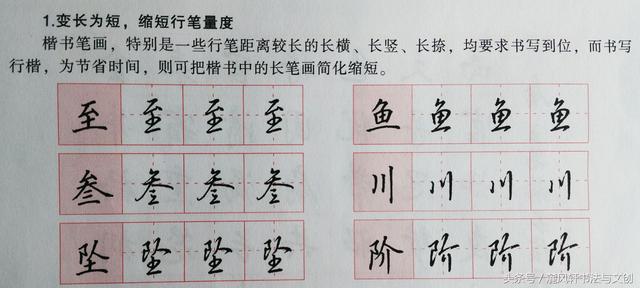 1.变长为短，缩短行笔量度
楷书笔画，特别是一些行笔距离较长的长横、长竖、长捺，均要求书写到位，而书写
行楷，为节省时间，则可把楷书中的长笔画简化缩短。
至 至 至 至 鱼 鱼 鱼 鱼
叁 叁 叁 叁 川 川 川 川
坠 坠 坠 坠 阶 阶 阶 阶
头条号/ 风轩书法与文创